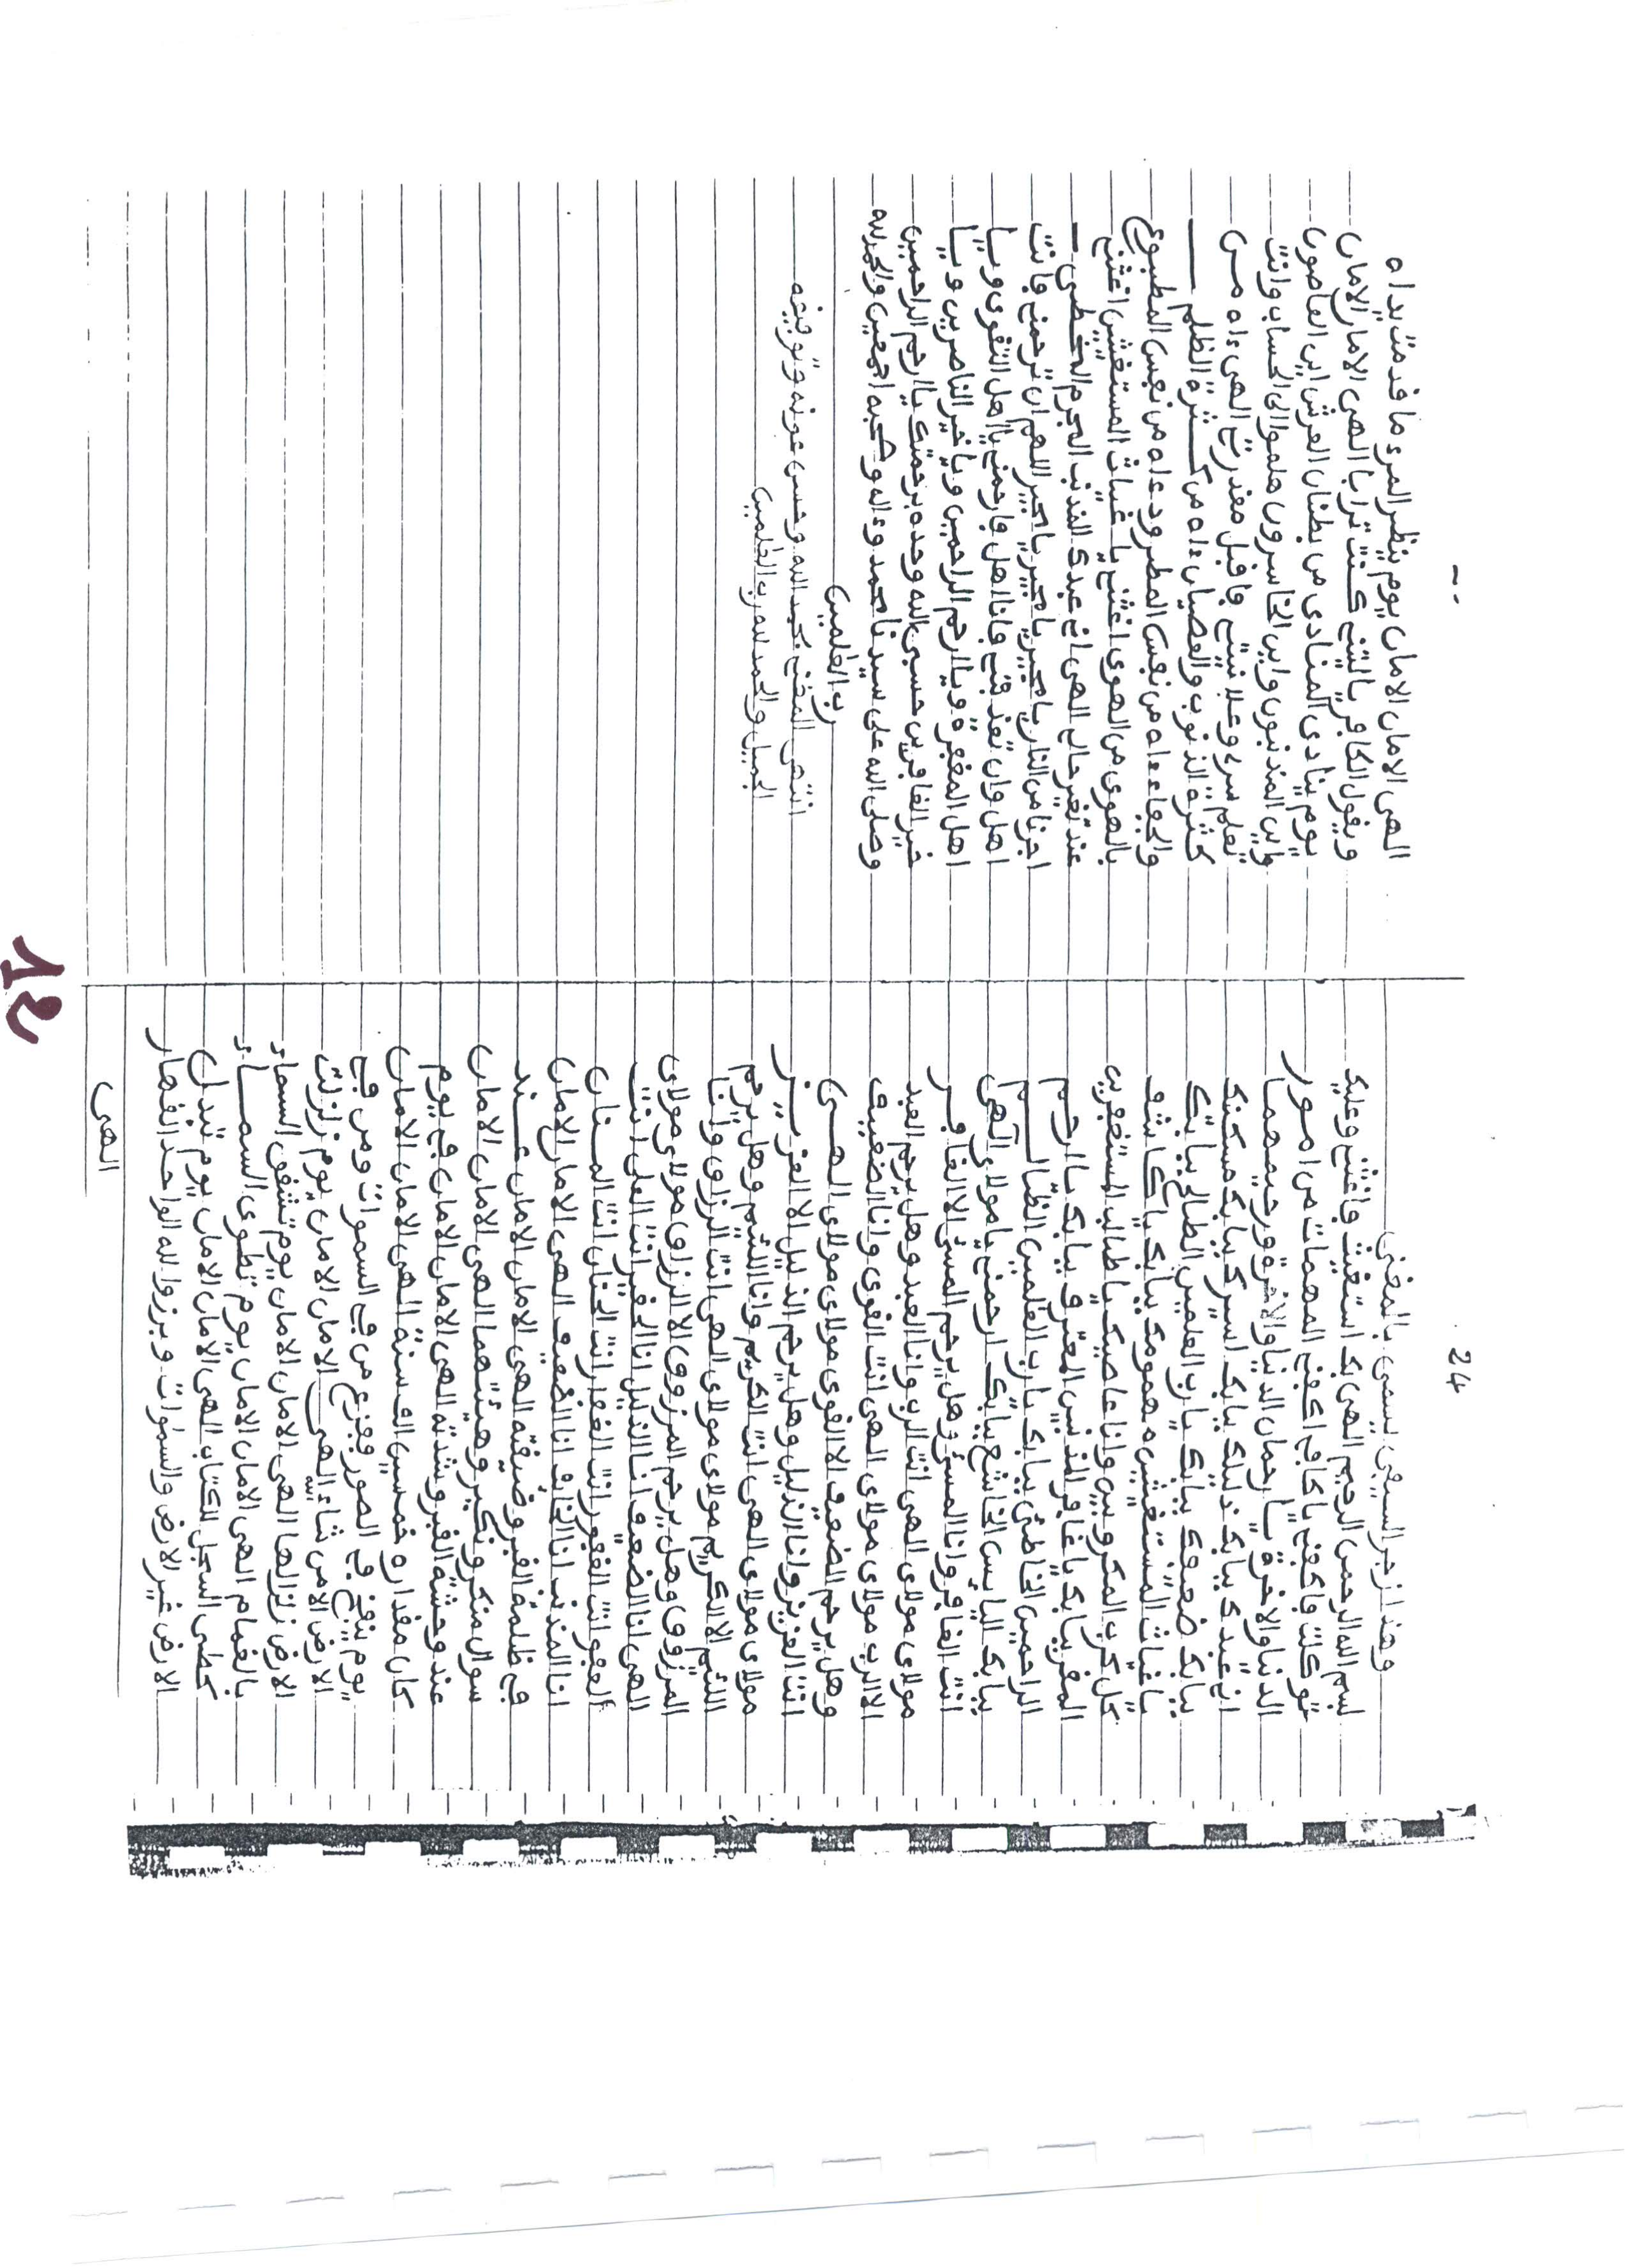 24
وهذا زجر السيفي يسمى بالمغني
بسم الله الرحمن الرحيم الهي بك استغيث فاغثني وعليك
توكلت فاكفني يا كافي اكفني المهمات من امور
الدنيا والاخرة يا رحمان الدنيا والاخرة ورحيمهما
اني عبدك ببابك ذليلك ببابك اسيرك ببابك مسكينك
ببابك ضعيفك ببابك يا رب العلمين الطالح ببابك
يا غياث المستغيثين مهمومك ببابك يا كاشف
كل كرب المكروبين وانا عاصيك يا طالب المستغفرين
المقر ببابك يا غافر المذنبين المعترف ببابك يا ارحم
الراحمين الخاطئ ببابك يا رب العلمين الظالم
ببابك البايس الخاشع ببابك ارحمني يا مولاي الهي
انت الغافر وانا المسئ وهل يرحم المسئ الا الغافر
مولاي مولاي الهي انت الرب وانا العبد وهل يرحم العبد
الا الرب مولاي مولاي الهي انت القوي وانا الضعيف
وهل يرحم الضعيف الا القوي مولاي مولاي الهي
انت العزيز وانا الذليل وهل يرحم الذليل الا العزيز
مولاي مولاي الهي انت الكريم وانا اللئيم وهل يرحم
اللئيم الا الكريم مولاي مولاي الهي انت الرزاق وانا
المرزوق وهل يرحم المرزوق الا الرزاق مولاي مولاي
الهي انا الضعيف انا الذليل انا الحقير انت العلي انت
العفو انت الغفور انت الغفار انت الحنان انت المنان
انا المذنب انا الخائف انا الضعيف الهي الامان الامان
في ظلمة القبر وضيقته الهي الامان الامان عند
سوال منكر ونكير وهيئتهما الهي الامان الامان
عند وحشة القبر وشدته الهي الامان الامان في يوم
كان مقداره خمسين الف سنة الهي الامان الامان
يوم ينفخ في الصور ففزع من في السموات ومن في
الارض الا من شاء الله الهي الامان الامان يوم زلزلت
الارض زلزالها الهي الامان الامان يوم تشقق السماء
بالغمام الهي الامان الامان يوم تطوى السماء
كطي السجل للكتاب الهي الامان الامان يوم تبدل
الارض غير الارض والسموات وبرزوا لله الواحد القهار
الهي
الهي الامان الامان يوم ينظر المرء ما قدمت يداه
ويقول الكافر يا ليتني كنت ترابا الهي الامان الامان
يوم ينادي المنادي من بطنان العرش اين العاصون
واين المذنبون واين الخاسرون هلموا الى الحساب وانت
تعلم سري وعلانيتي فاقبل معذرتي الهي ءاه من
كثرة الذنوب والعصيان ءاه من كثرة الظلم
والجفاء ءاه من نفس المطرود ءاه من نفس المطبوع
بالهوى من الهوى اغثني يا غياث المستغيثين اغثني
عند تغير حالي الهي اني عبدك المذنب المجرم المخطئ
اجرنا من النار يا مجير يا مجير يا مجير اللهم ان ترحمني فانت
اهل وان تعذبني فانا اهل فارحمني يا اهل التقوى ويا
اهل المغفرة ويا ارحم الراحمين ويا خير الناصرين ويا
خير الغافرين حسبي الله وحده برحمتك يا ارحم الراحمين
وصلى الله على سيدنا محمد وءاله وصحبه اجمعين والحمد لله
رب العلمين
انتهى المغني بحمد الله وحسن عونه وتوفيقه
الجميل والحمد لله رب العلمين
12